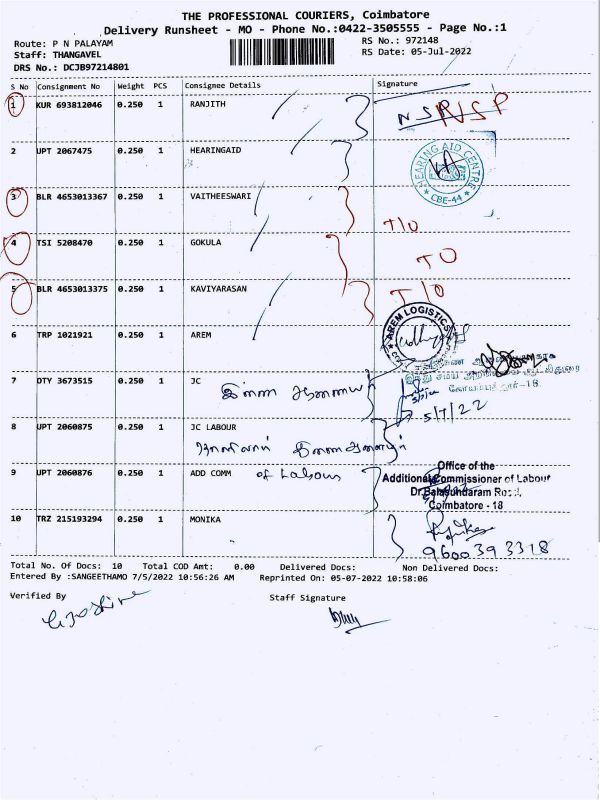 THE PROFESSIONAL COURIERS, Coimbatore
Delivery Runsheet - MO - Phone No.:0422-3505555 - Page No.:1
Route: P N PALAYAM
RS No.: 972148
Staff: THANGAVEL
RS Date: 05-Jul-2022
DRS No.: DCJB97214801
S No Consignment No Weight PCS Consignee Details Signature
1 KUR 693812046 0.250 1 RANJITH NSP NSP
2 UPT 2067475 0.250 1 HEARINGAID
HEARING AID CENTRE
CBE-44
3 BLR 4653013367 0.250 1 VAITHEESWARI T/O
4 TSI 5208470 0.250 1 GOKULA TO
5 BLR 4653013375 0.250 1 KAVIYARASAN T/O
6 TRP 1021921 0.250 1 AREM
AREM LOGISTICS
7 OTY 3673515 0.250 1 JC
கோயம்புத்தூர்-18.
5/7/22
8 UPT 2060875 0.250 1 JC LABOUR
9 UPT 2060876 0.250 1 ADD COMM of Labour
Office of the
Additional Commissioner of Labour
Dr.Balasundaram Road,
Coimbatore - 18
10 TRZ 215193294 0.250 1 MONIKA
9600393318
Total No. Of Docs: 10 Total COD Amt: 0.00 Delivered Docs: Non Delivered Docs:
Entered By :SANGEETHAMO 7/5/2022 10:56:26 AM Reprinted On: 05-07-2022 10:58:06
Verified By
Staff Signature